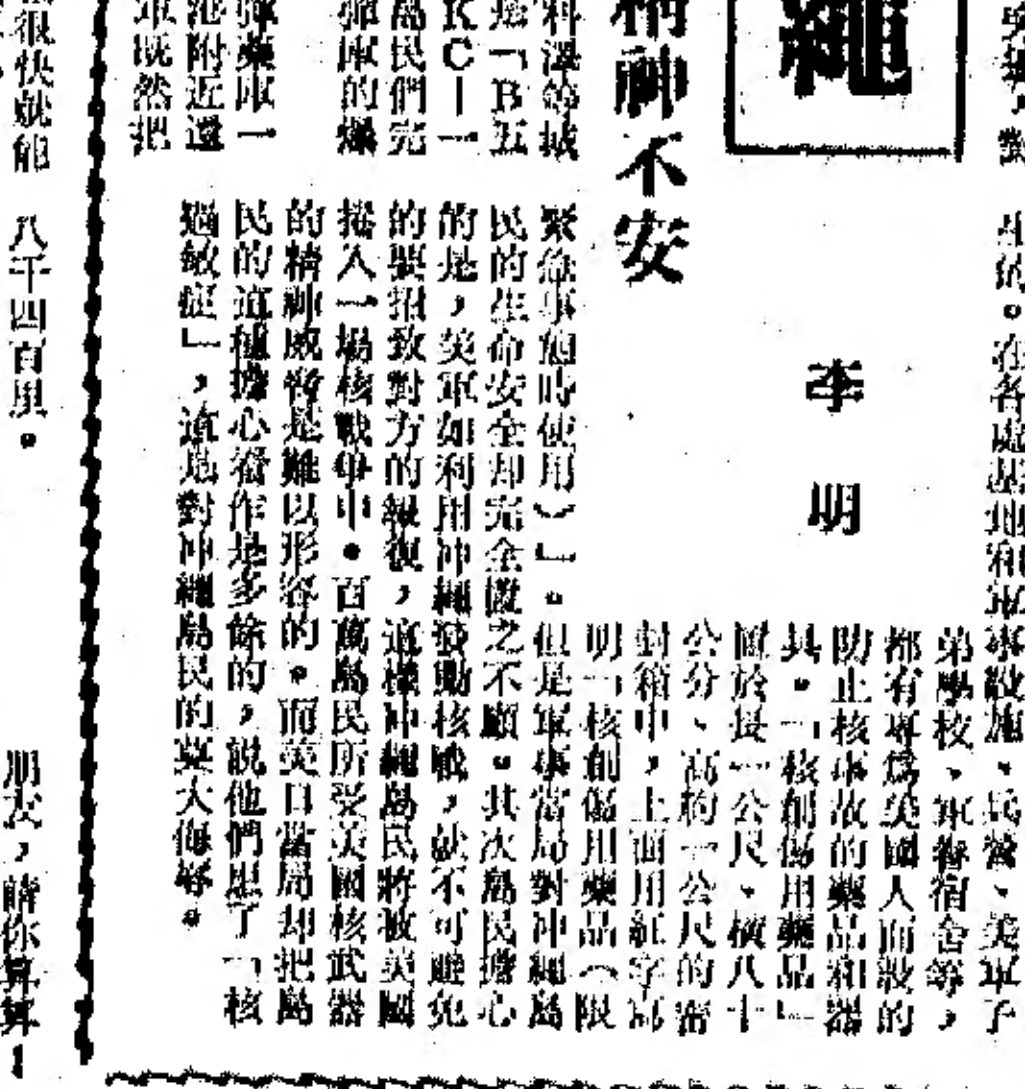 繩
精神不安
李明
生的。在各處基地和軍事設施、兵營、美軍子
弟學校、軍眷宿舍等，
都有專爲美國人而設的
防止核事故的藥品和器
具。「核創傷用藥品」
置於長一公尺、橫八十
公分、高約一公尺的密
封箱中，上面用紅字寫
明「核創傷用藥品（限
緊急事態時使用）」。但是軍事當局對冲繩島
民的生命安全却完全置之不顧。其次島民擔心
的是，美軍如利用冲繩發動核戰，就不可避免
的要招致對方的報復，這樣冲繩島民將被美國
捲入一場核戰爭中。百萬島民所受美國核武器
的精神威脅是難以形容的。而美日當局却把島
民的這種擔心看作是多餘的，說他們患了「核
過敏症」，這是對冲繩島民的莫大侮辱。
是「B五
KC—一
島民們完
彈庫的爆
彈藥庫一
港附近還
軍既然把
很快就能
八千四百里。
朋友，請你算算！